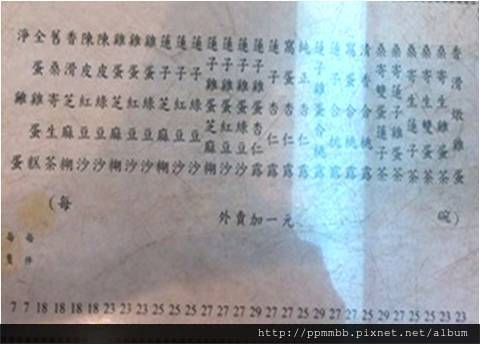 香滑燉雞蛋
桑寄生雞蛋茶
桑寄生雙蛋茶
桑寄生蓮子茶
桑寄蓮子雞蛋茶
桑寄雙蛋蓮子茶
清香合桃露
窩蛋合桃露
蓮子合桃露
蓮子雞蛋合桃露
純正杏仁露
窩蛋杏仁露
蓮子杏仁露
蓮子雞蛋杏仁露
蓮子雞蛋綠豆沙
蓮子雞蛋紅豆沙
蓮子雞蛋芝麻糊
蓮子綠豆沙
蓮子紅豆沙
蓮子芝麻糊
雞蛋綠豆沙
雞蛋紅豆沙
雞蛋芝麻糊
陳皮綠豆沙
陳皮紅豆沙
香滑芝麻糊
舊桑寄生茶
全蛋雞蛋糕
淨雞蛋
(每 碗)
外賣加一元
每件
每隻
7 7 18 18 18 18 23 23 23 25 25 25 27 27 27 29 27 27 25 29 27 27 25 29 27 25 25 23 23
http://ppmmbb.pixnet.net/album